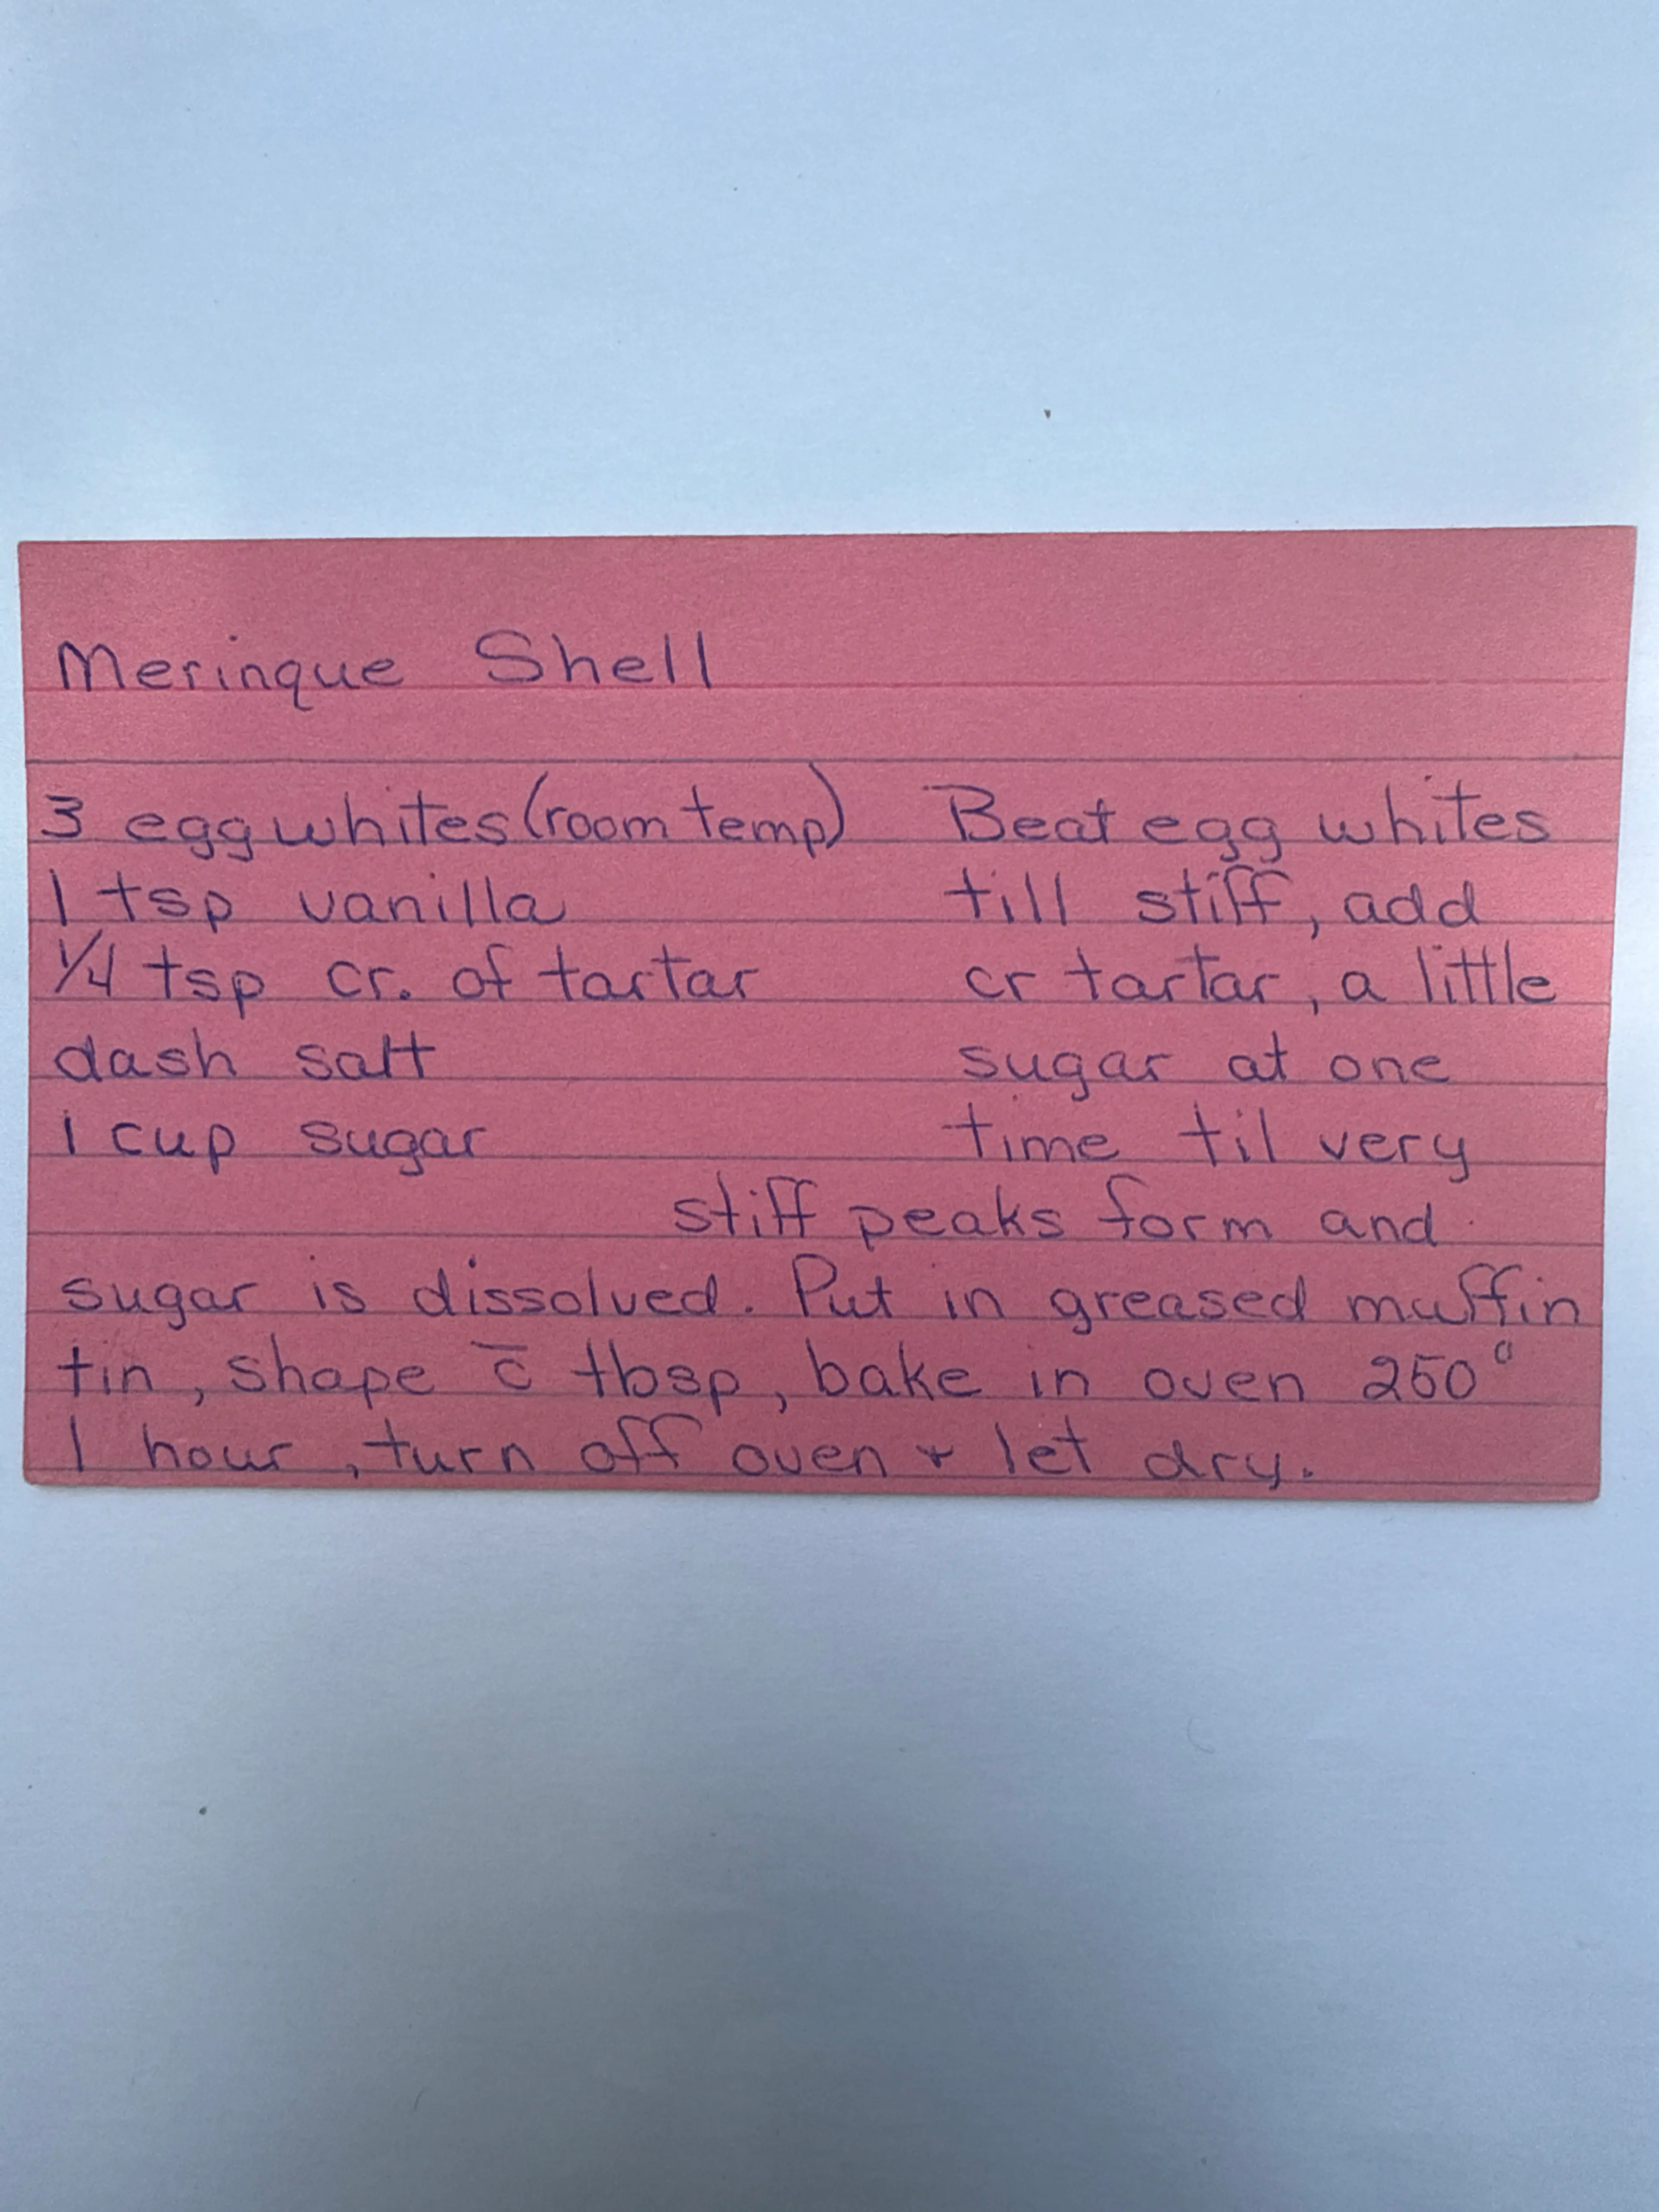 Merinque Shell
3 egg whites (room temp)
1 tsp vanilla
1/4 tsp cr. of tartar
dash salt
1 cup sugar
Beat egg whites
till stiff, add
cr tartar, a little
sugar at one
time til very
stiff peaks form and
sugar is dissolved. Put in greased muffin
tin, shape c̄ tbsp, bake in oven 250°
1 hour, turn off oven & let dry.